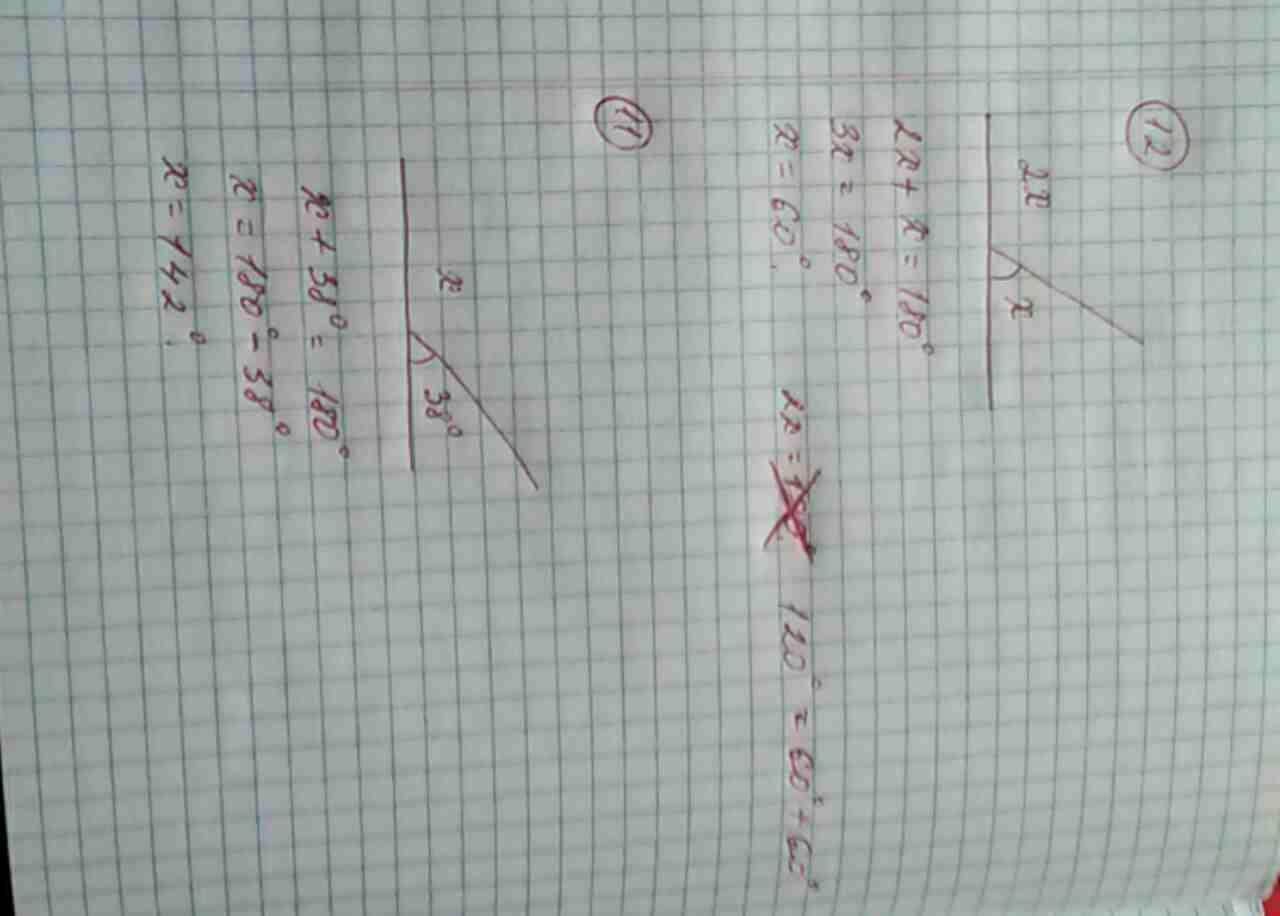 12
2x x
2x + x = 180°
3x = 180°
x = 60°. 2x = 120° = 60° + 60°
11
x 38°
x + 38° = 180°
x = 180° - 38°
x = 142°.